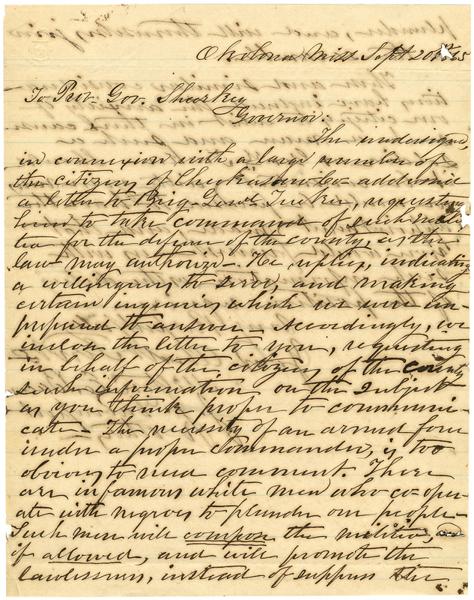 Okolona Miss Sept 20th 65
To Prov. Gov. Sharkey
Governor:
The undersigned
in connexion with a large number of
the citizens of Chickasaw Co addressed
a letter to Brig. Genl Tucker, requesting
him to take command of such mili
tia for the defense of the county, as the
law may authorize. He replies, indicating
a willingness to serve, and making
certain inquiries which we were un
prepared to answer. Accordingly, we
inclose the letter to you, requesting
in behalf of the citizens of the county
such information on the subject
as you think proper to communi
cate. The necessity of an armed force
under a proper commander, is too
obvious to need comment. There
are infamous white men who co-oper
ate with negroes to plunder our people.
Such men will compose the militia,
if allowed, and will promote the
lawlessness, instead of suppress the